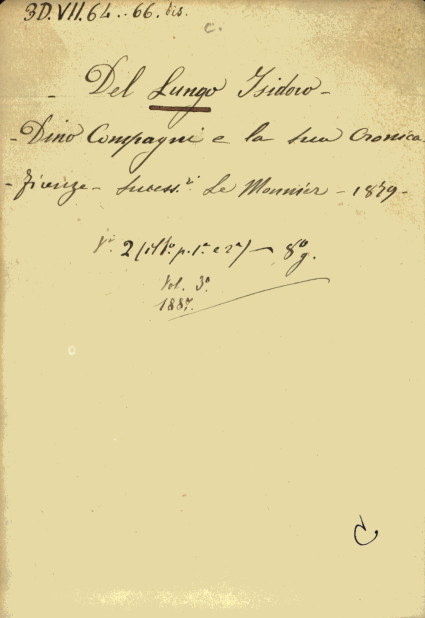 3D.VII.64..66.bis.
C.
- Del Lungo Isidoro -
- Dino Compagni e la sua Cronica.
- Firenze - Success.i Le Monnier - 1879 -
Vi 2 (il 1o. p. 1a e 2a) — 8o g.
Vol. 3o.
1887.
C